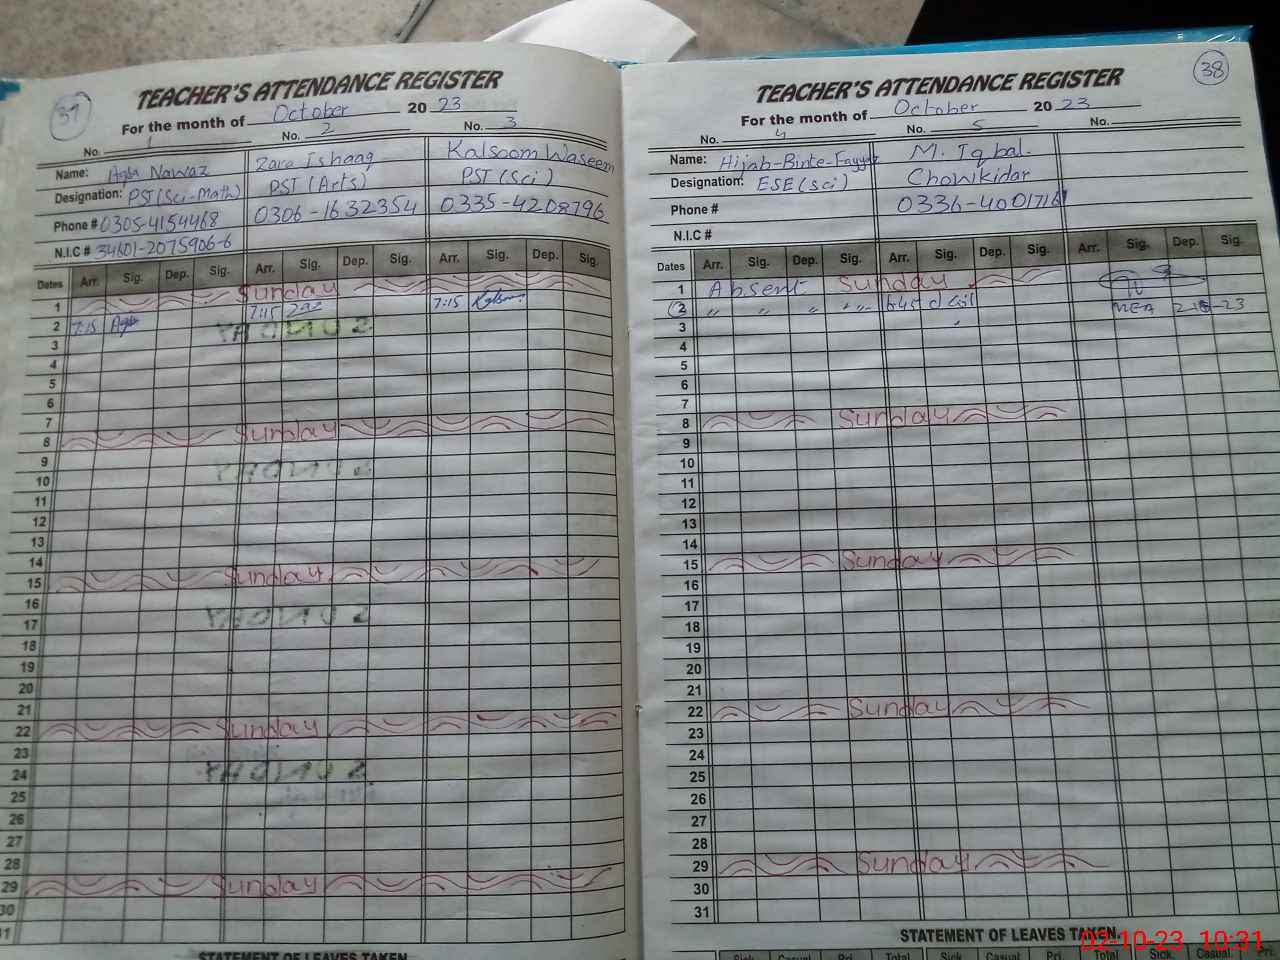 37
TEACHER'S ATTENDANCE REGISTER
For the month of October 2023
No. 1 No. 2 No. 3
Name: Aqsa Nawaz Zara Ishaaq Kalsoom Waseem
Designation: PST(Sci-Math) PST(Arts) PST(Sci)
Phone # 0305-4154468 0306-1632354 0335-4208796
N.I.C # 34601-2075906-6
Dates Arr. Sig. Dep. Sig. Arr. Sig. Dep. Sig. Arr. Sig. Dep. Sig.
1 Sunday
2 7:15 7:15 7:15
3
4
5
6
7
8 Sunday
9
10
11
12
13
14
15 Sunday
16
17
18
19
20
21
22 Sunday
23
24
25
26
27
28
29 Sunday
30
31
STATEMENT OF LEAVES TAKEN
38
TEACHER'S ATTENDANCE REGISTER
For the month of October 2023
No. 4 No. 5 No.
Name: Hijab-Binte-Fayyaz M. Iqbal
Designation: ESE(Sci) Chowkidar
Phone # 0336-4001716
N.I.C #
Dates Arr. Sig. Dep. Sig. Arr. Sig. Dep. Sig. Arr. Sig. Dep. Sig.
1 Absent Sunday
2 " " " " " 645 MEA
3
4
5
6
7
8 Sunday
9
10
11
12
13
14
15 Sunday
16
17
18
19
20
21
22 Sunday
23
24
25
26
27
28
29 Sunday
30
31
STATEMENT OF LEAVES TAKEN.
Sick. Casual. Pri. Total Sick. Casual Pri. Total Sick. Casual. Pri.
02-10-23 10:31